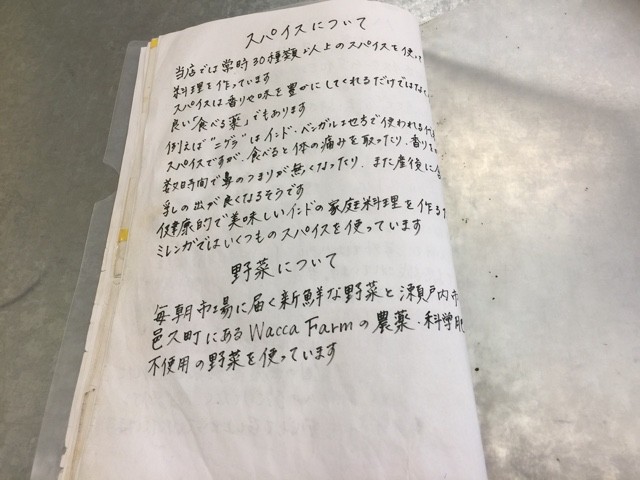 スパイスについて
当店では常時30種類以上のスパイスを使って
料理を作っています
スパイスは香りや味を豊かにしてくれるだけではなく
良い「食べる薬」でもあります
例えば"ニゲラ"はインド・ベンガル地方で使われる代
スパイスですが、食べると体の痛みを取ったり、香りを
数時間で鼻のつまりが無くなったり、また産後に食
乳の出が良くなるそうです
健康的で美味しいインドの家庭料理を作るた
ミレンガではいくつものスパイスを使っています
野菜について
毎朝市場に届く新鮮な野菜と瀬戸内市
邑久町にあるWacca Farmの農薬・科学肥
不使用の野菜を使っています